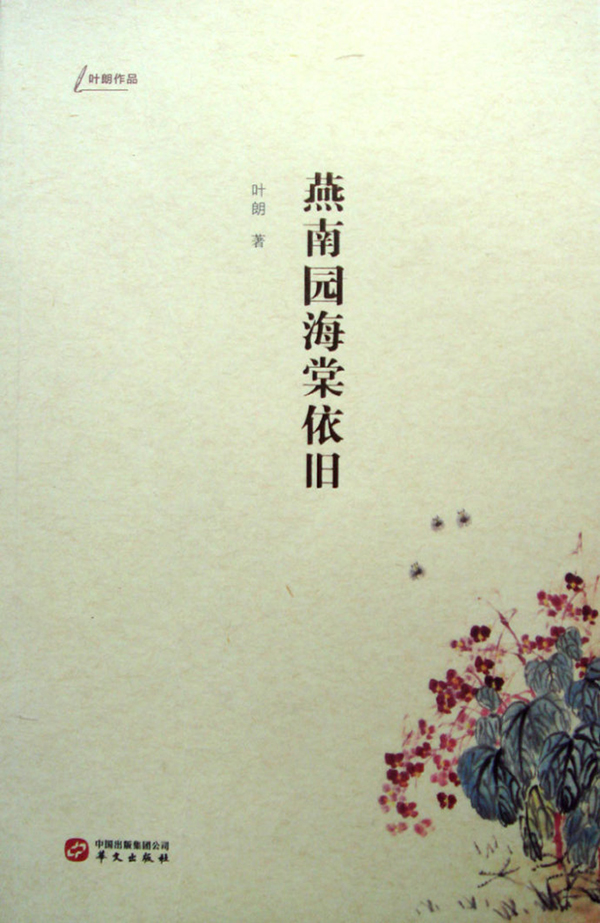 叶朗作品
燕南园海棠依旧
叶朗 著
中国出版集团公司
华文出版社